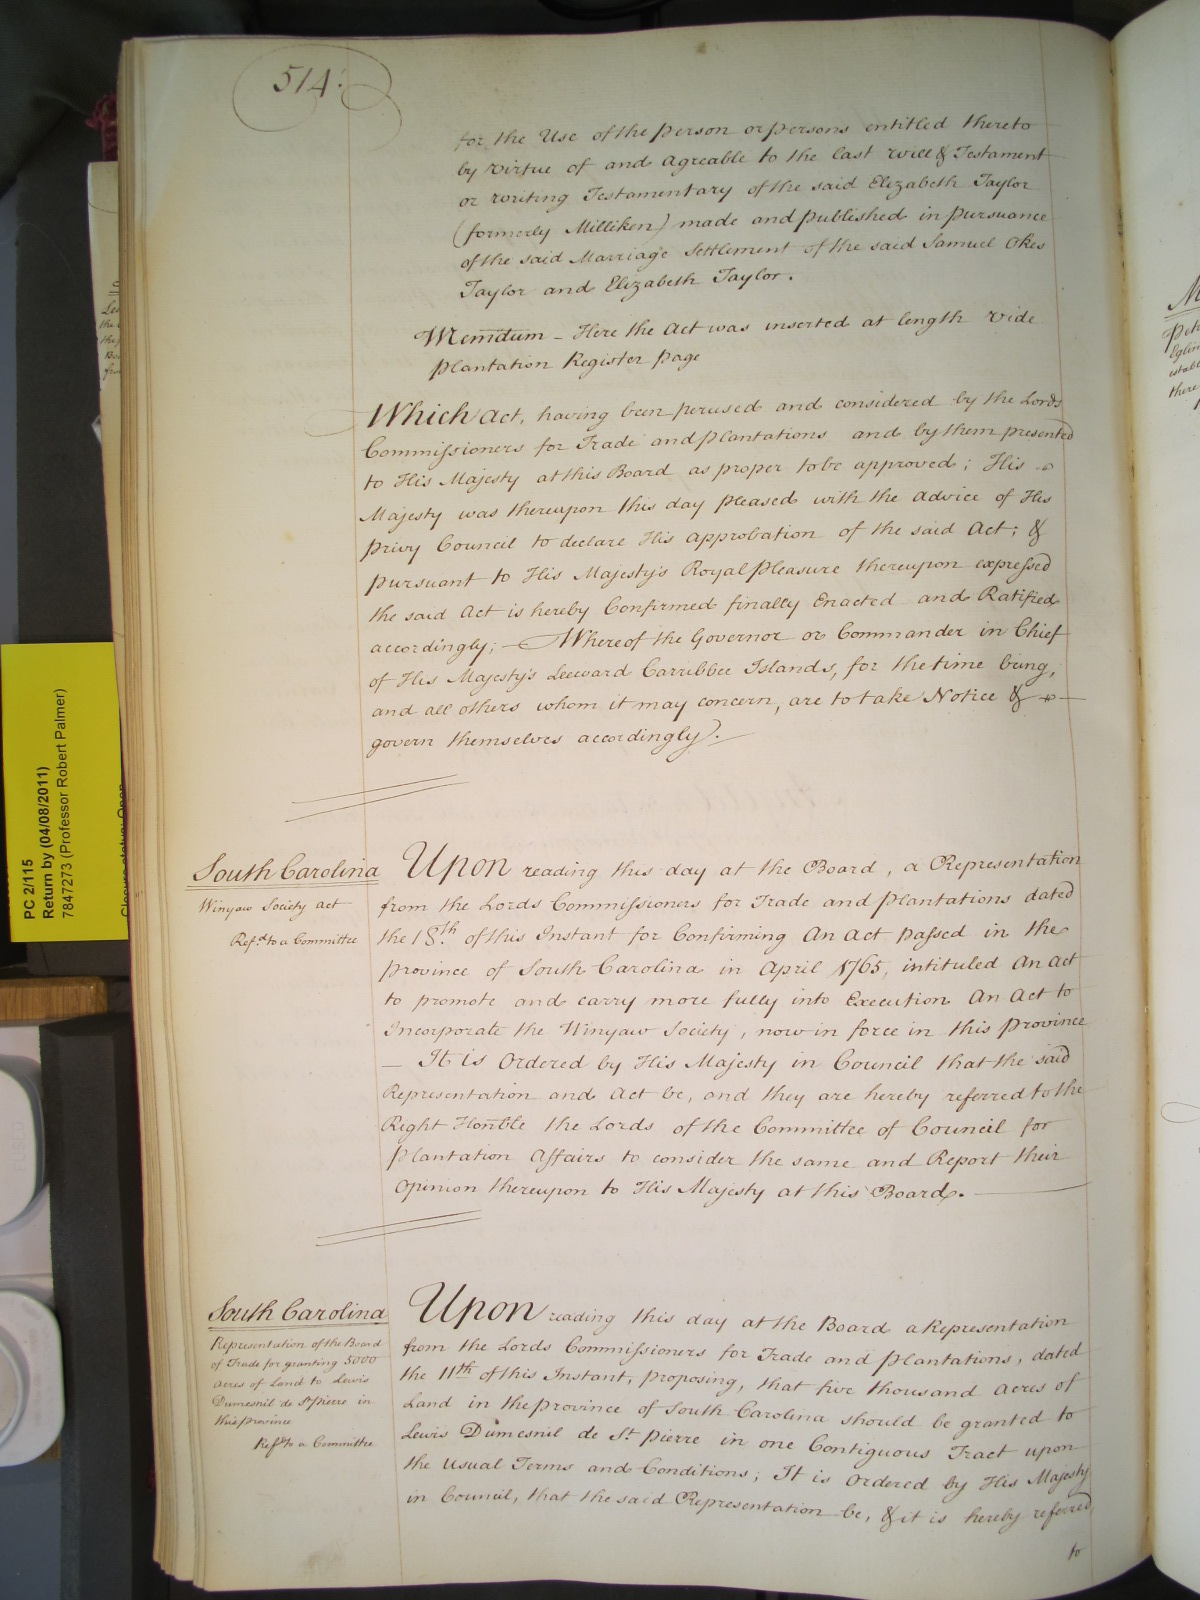 514.
for the Use of the person or persons entitled thereto
by virtue of and agreable to the last will & Testament
or writing Testamentary of the said Elizabeth Taylor
(formerly Milliken) made and published in pursuance
of the said Marriage Settlement of the said Samuel Okes
Taylor and Elizabeth Taylor.
Memdum - Here the Act was inserted at length vide
Plantation Register page
Which Act, having been perused and considered by the Lords
Commissioners for Trade and Plantations and by them presented
to His Majesty at this Board as proper to be approved; His
Majesty was thereupon this day pleased with the advice of His
Privy Council to declare His Approbation of the said Act; &
pursuant to His Majesty's Royal Pleasure thereupon expressed
the said Act is hereby Confirmed finally Enacted and Ratified
accordingly; — Whereof the Governor or Commander in Chief
of His Majesty's Leeward Carribbee Islands, for the time being,
and all others whom it may concern, are to take Notice &
govern themselves accordingly.
South Carolina
Winyaw Society Act
Ref.d to a Committee
Upon reading this day at the Board, a Representation
from the Lords Commissioners for Trade and Plantations dated
the 18th of this Instant for Confirming An Act passed in the
Province of South Carolina in April 1765, intituled An Act
to promote and carry more fully into Execution An Act to
Incorporate the Winyaw Society, now in force in this Province
— It is Ordered by His Majesty in Council that the said
Representation and Act be, and they are hereby referred to the
Right Honble the Lords of the Committee of Council for
Plantation Affairs to consider the same and Report their
Opinion thereupon to His Majesty at this Board.
South Carolina
Representation of the Board
of Trade for granting 5000
Acres of Land to Lewis
Dumesnil de St pierre in
this province
Refd to a Committee
Upon reading this day at the Board a Representation
from the Lords Commissioners for Trade and Plantations, dated
the 11th of this Instant, proposing, that five thousand Acres of
Land in the Province of South Carolina should be granted to
Lewis Dumesnil de St pierre in one Contiguous Tract upon
the usual Terms and Conditions; It is Ordered by His Majesty
in Council, that the said Representation be, & it is hereby referred
to
PC 2/115
Return by (04/08/2011)
7847273 (Professor Robert Palmer)